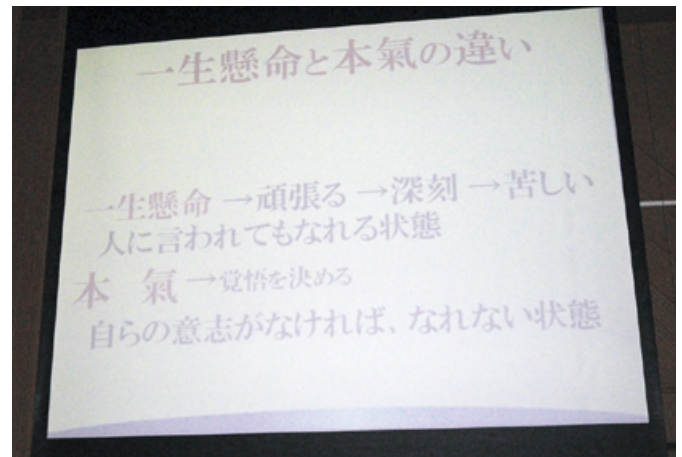 一生懸命と本氣の違い
一生懸命→頑張る→深刻→苦しい
人に言われてもなれる状態
本 氣→覚悟を決める
自らの意志がなければ、なれない状態